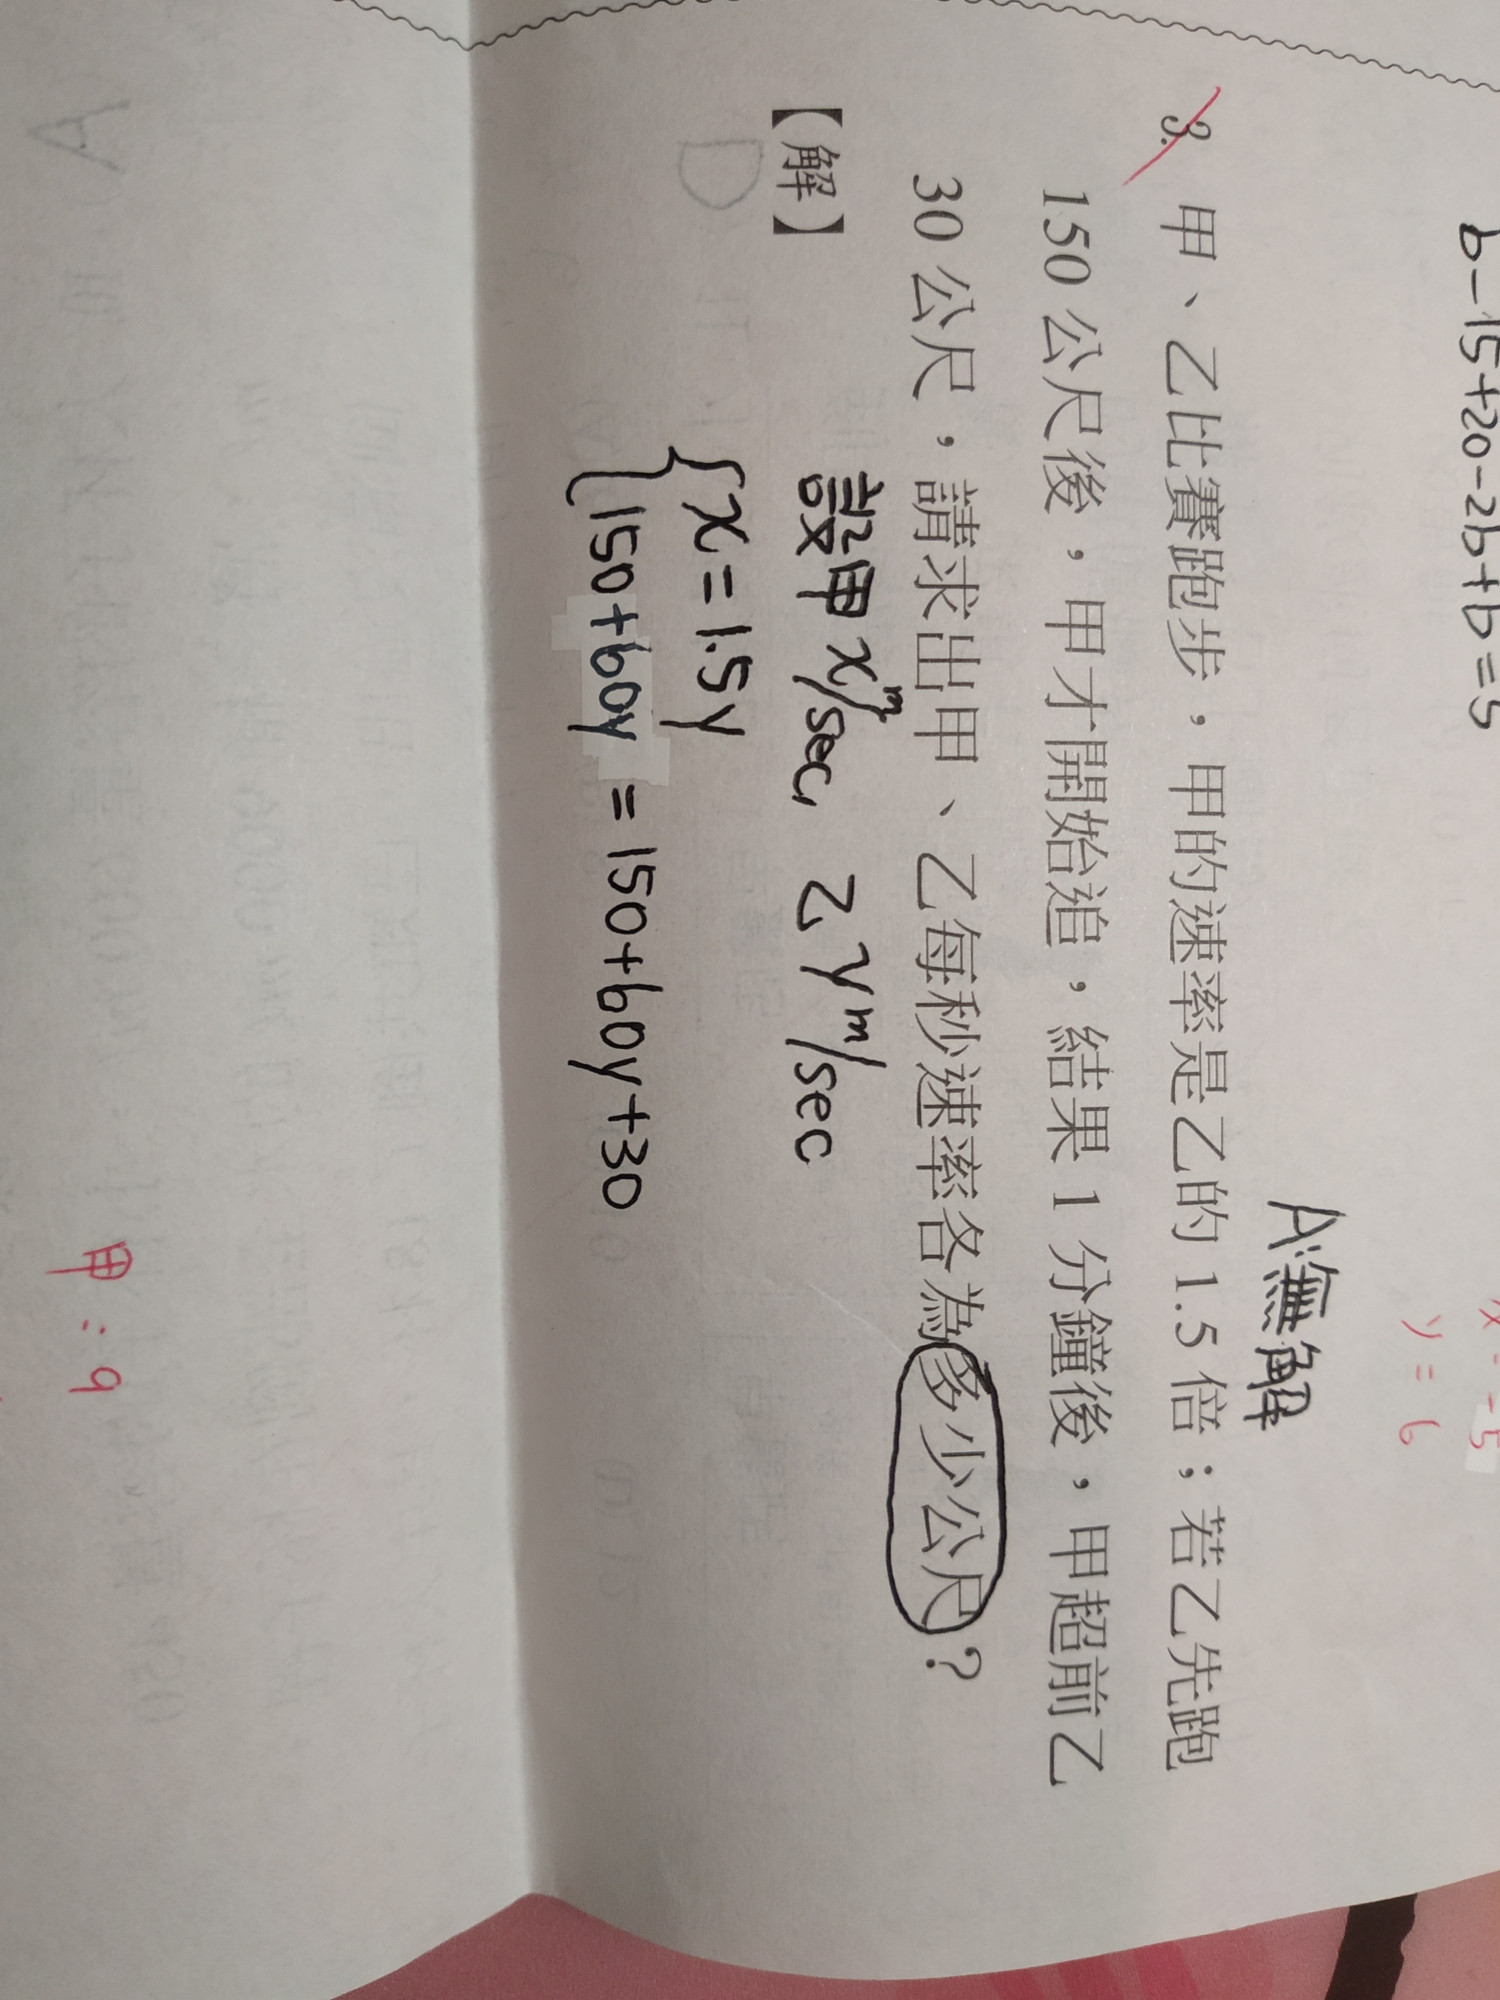 b-15+20-2b+b=5
y=6
A:無解
3. 甲、乙比賽跑步，甲的速率是乙的1.5倍；若乙先跑
150公尺後，甲才開始追，結果1分鐘後，甲超前乙
30公尺，請求出甲、乙每秒速率各為多少公尺？
【解】
設甲 x m/sec, 乙 y m/sec
x=1.5y
150+60y=150+60y+30
甲:9